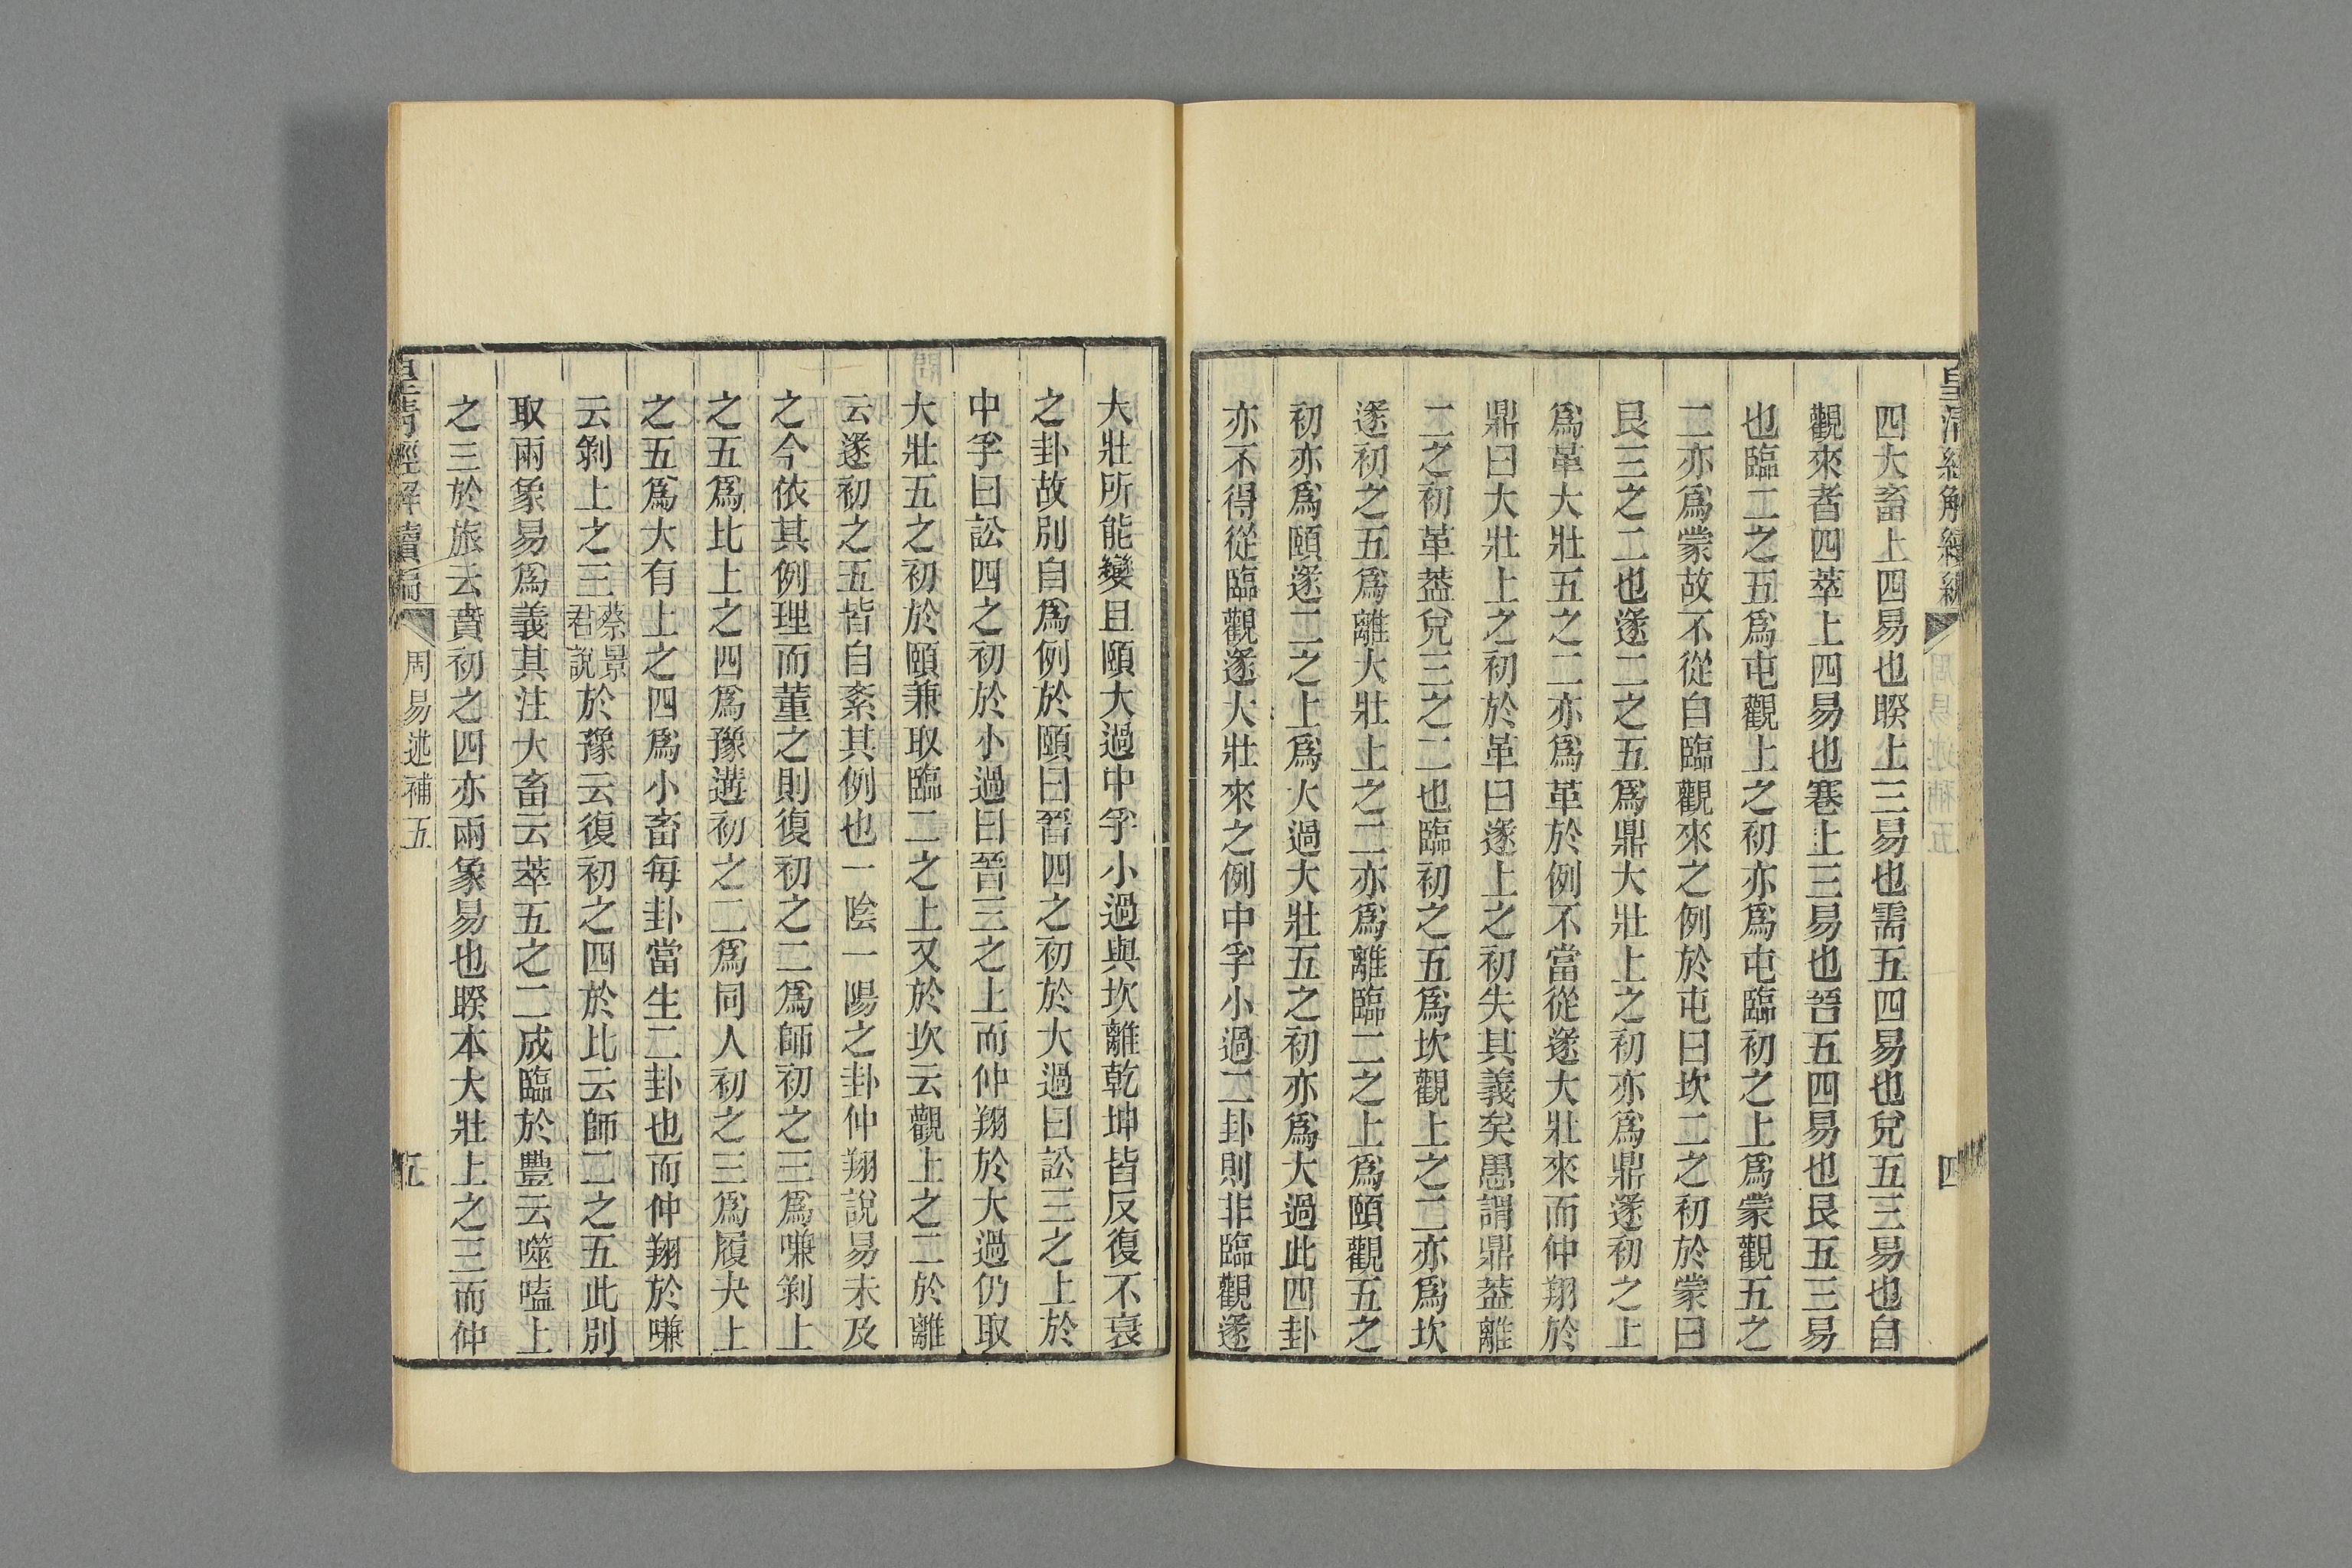 皇清經解續編
四
四大畜上四易也睽上三易也需五四易也兌五三易也自
觀來者四萃上四易也蹇上三易也晉五四易也艮五三易
也臨二之五爲屯觀上之初亦爲屯臨初之上爲蒙觀五之
二亦爲蒙故不從自臨觀來之例於屯曰坎二之初於蒙曰
艮三之二也遂二之五爲鼎大壯上之初亦爲鼎遂初之上
爲革大壯五之二亦爲革於例不當從遂大壯來而仲翔於
鼎曰大壯上之初於革曰遂上之初失其義矣愚謂鼎葢離
二之初革葢兌三之二也臨初之五爲坎觀上之二亦爲坎
遂初之五爲離大壯上之二亦爲離臨二之上爲頤觀五之
初亦爲頤遂二之上爲大過大壯五之初亦爲大過此四卦
亦不得從臨觀遂大壯來之例中孚小過二卦則非臨觀遂
大壯所能變且頤大過中孚小過與坎離乾坤皆反復不衰
之卦故別自爲例於頤曰晉四之初於大過曰訟三之上於
中孚曰訟四之初於小過曰晉三之上而仲翔於大過仍取
大壯五之初於頤兼取臨二之上又於坎云觀上之二於離
云遂初之五皆自紊其例也一陰一陽之卦仲翔說易未及
之今依其例理而董之則復初之二爲師初之三爲嗛剝上
之五爲比上之四爲豫遘初之二爲同人初之三爲履夬上
之五爲大有上之四爲小畜每卦當生二卦也而仲翔於嗛
云剝上之三蔡景君說於豫云復初之四於比云師二之五此別
取兩象易爲義其注大畜云萃五之二成臨於豐云噬嗑上
之三於旅云賁初之四亦兩象易也睽本大壯上之三而仲
皇清經解續編
周易述補五
五